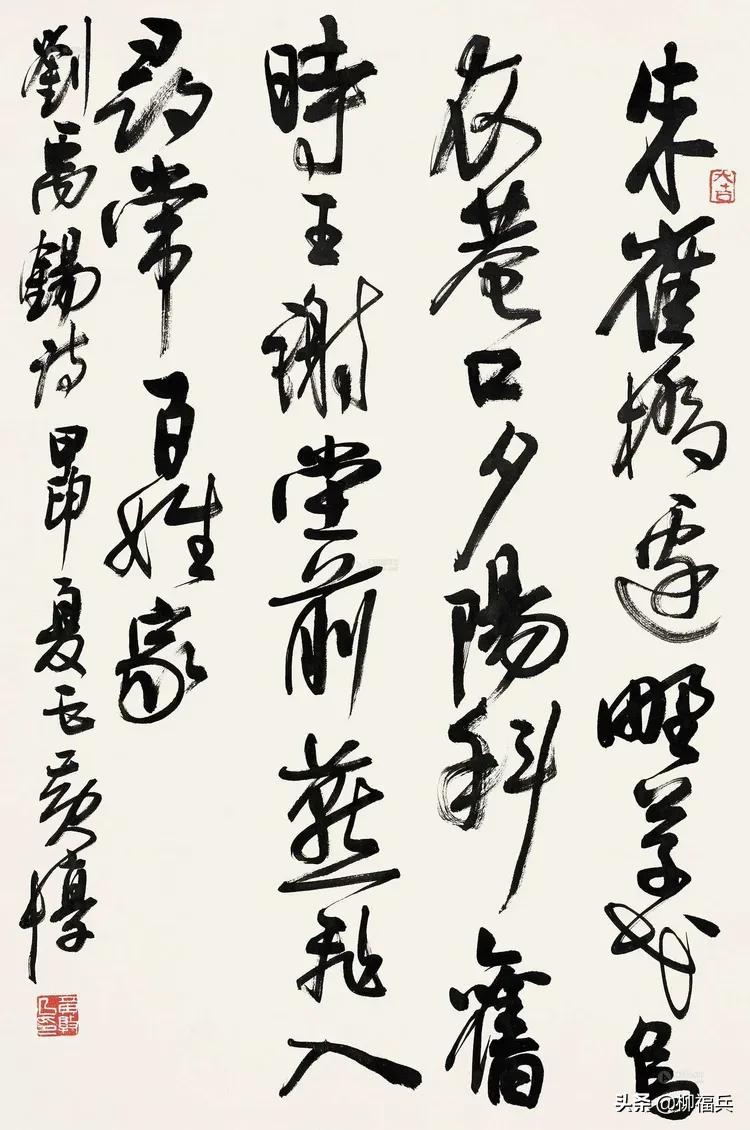 朱雀橋邊野草花烏
衣巷口夕陽斜舊
時王謝堂前燕飛入
尋常百姓家
劉禹錫詩甲申夏黃惇
大吉
头条 @柳福兵